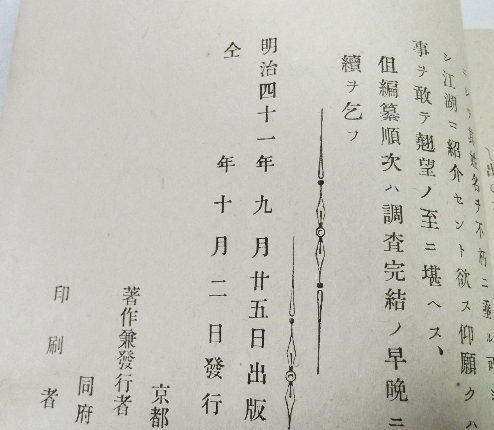 其姓名ヲ不朽ニ垂ル
シ江湖ニ紹介セント欲ス仰願クハ
事ヲ敢テ翹望ノ至ニ堪ヘス、
但編纂順次ハ調査完結ノ早晩ニ
續ヲ乞フ
明治四十一年九月廿五日出版
仝年十月二日發行
京都
著作兼發行者
同府
印刷者